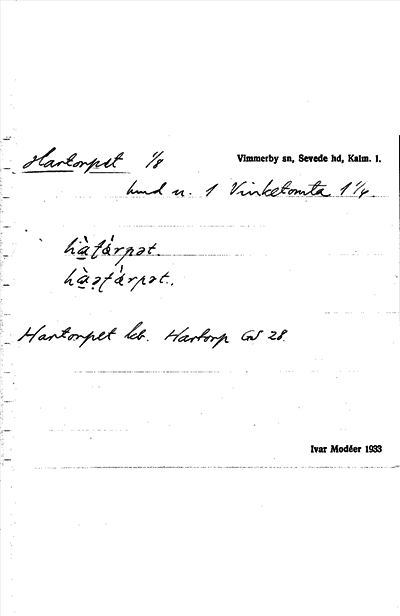 Hartorpet 1/8 Vimmerby sn, Sevede hd, Kalm. l.
und u. 1 Vinketomta 1 1/4.
Hartorpet lcb. Hartorp GS 28.
Ivar Modéer 1933